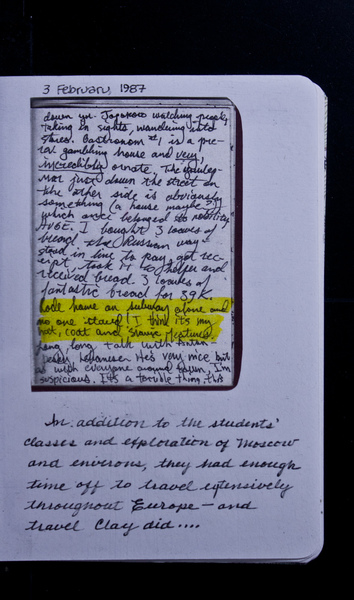 3 February, 1987
down ul. Gorkovo watching people,
taking in sights, wandering into
stores. Gastronom #1 is a pre-
rev gambling house and very,
incredibly ornate. The
just down the street on
the other side is obviously
something (a house maybe?)
which once belonged to nobility
HUGE. I bought 3 loaves of
bread the Russian way -
stood in line to pay, got rec-
eipt, took it to helper and
received bread. 3 loaves of
fantastic bread for 39K.
Rode home on subway alone and
no one stared! I think it's my
hat, coat and Slavic features.
Long, long talk with
Lebanese. He's very nice but
as with everyone around him, I'm
suspicious. It's a terrible thing, this
In addition to the students'
classes and exploration of Moscow
and environs, they had enough
time off to travel extensively
throughout Europe — and
travel Clay did....